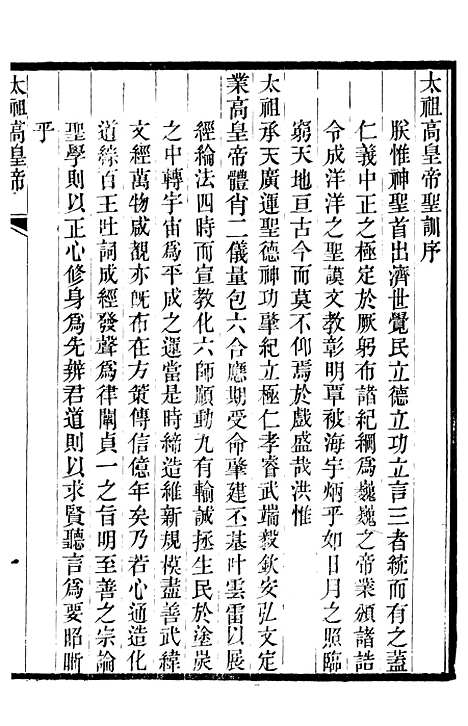 太祖高皇帝聖訓序
朕惟神聖首出濟世覺民立德立功立言三者統而有之蓋
仁義中正之極定於厥躬布諸紀綱爲巍巍之帝業頒諸誥
令成洋洋之聖謨文教彰明覃被海宇炳乎如日月之照臨
窮天地亘古今而莫不仰焉於戲盛哉洪惟
太祖承天廣運聖德神功肇紀立極仁孝睿武端毅欽安弘文定
業高皇帝體肖二儀量包六合應期受命肇建丕基叶雲雷以展
經綸法四時而宣教化六師順動九有輸誠拯生民於塗炭
之中轉宇宙爲平成之運當是時締造維新規模盡善武緯
文經萬物咸覩亦旣布在方策傳信億年矣乃若心通造化
道綜百王吐詞成經發聲爲律闡貞一之旨明至善之宗論
聖學則以正心修身爲先辨君道則以求賢聽言爲要昭晣
乎
太祖高皇帝